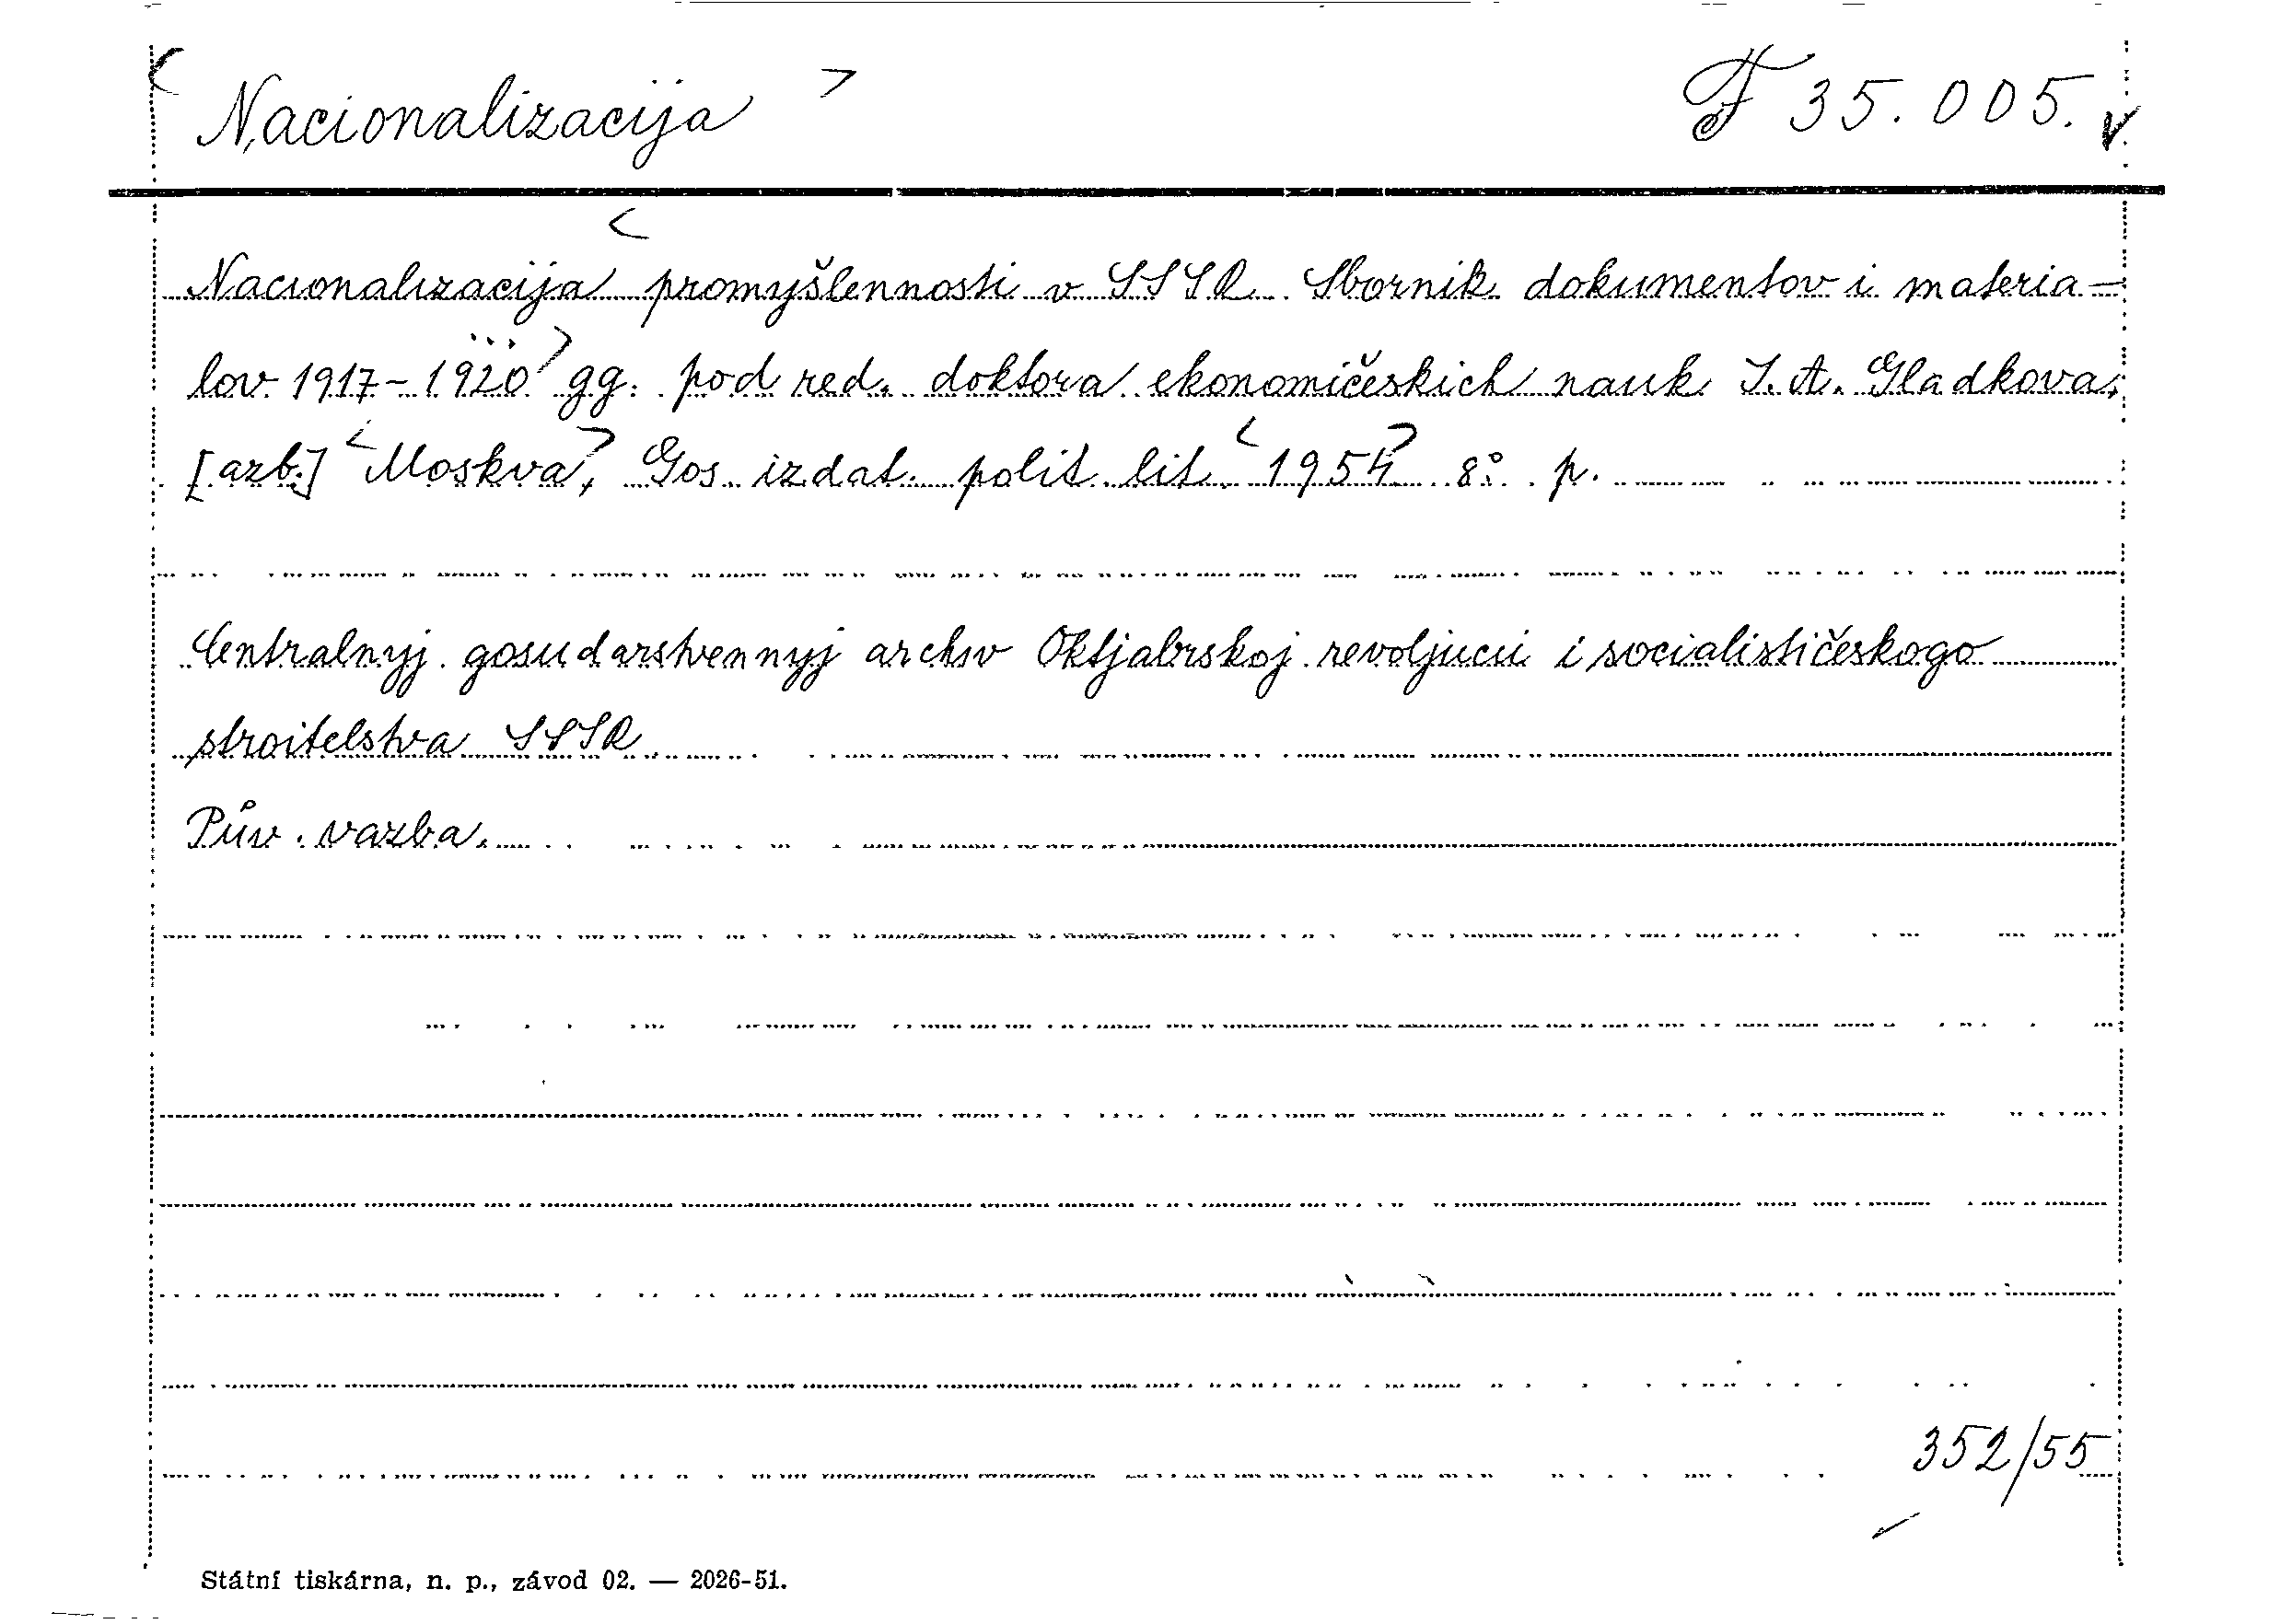 Nacionalizacija F 35.005.
Nacionalizacija promyšlennosti v SSSR. Sbornik dokumentov i materia-
lov 1917-1920 gg. pod red. doktora ekonomičeskich nauk I. A. Gladkova,
[azb.] Moskva, Gos. izdat. polit. lit. 1954 8° p.
Centralnyj gosudarstvennyj archiv Oktjabrskoj revoljucii i socialističeskogo
stroitelstva SSSR.
Pův. vazba.
352/55
Státní tiskárna, n. p., závod 02. — 2026-51.